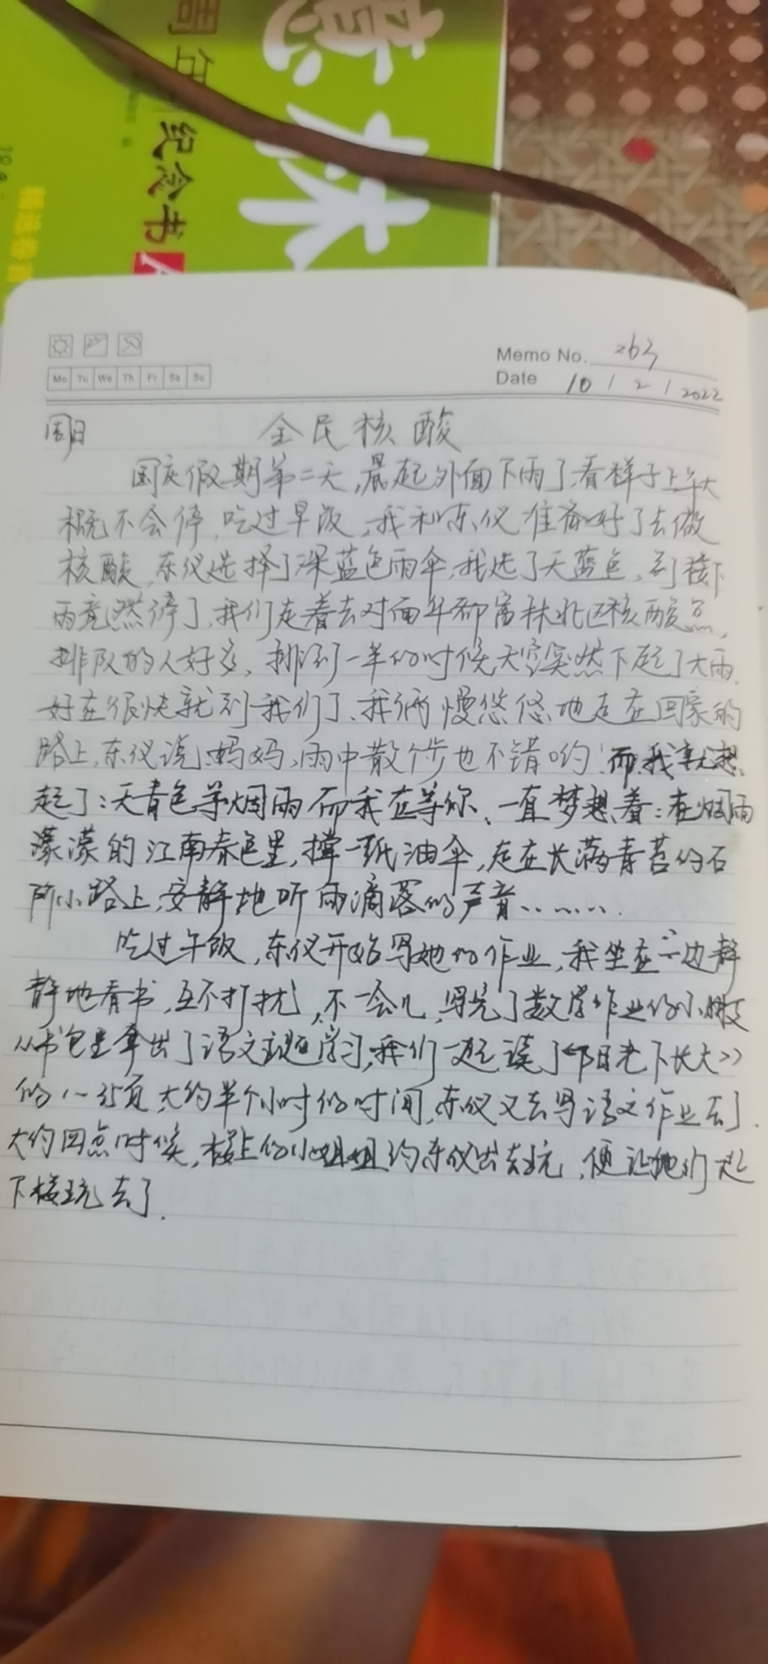 意林
周年纪念书
Memo No. 263
Mo Tu We Th Fr Sa Su
Date 10 / 2 / 2022
周日 全民核酸
国庆假期第二天,晨起外面下雨了,看样子上午大
概不会停,吃过早饭,我和东仪准备好了去做
核酸,东仪选择了深蓝色雨伞,我选了天蓝色,到楼下
雨竟然停了,我们走着去对面年郡富林北区核酸点,
排队的人好多,排到一半的时候天空突然下起了大雨,
好在很快就到我们了,我俩慢悠悠地走在回家的
路上,东仪说:妈妈,雨中散个步也不错哟!而我就想
起了:天青色等烟雨而我在等你、一直梦想着:在烟雨
濛濛的江南春色里,撑一纸油伞,走在长满青苔的石
阶小路上,安静地听雨滴落的声音……
吃过午饭,东仪开始写她的作业,我坐在一边静
静地看书,互不打扰,不一会儿,写完了数学作业的小
从书包里拿出了语文主题学习,我们一起读了《阳光下长大》
的 页,大约半个小时的时间,东仪又去写语文作业去了.
大约四点时候,楼上的小姐姐约东仪出去玩,便让她们一起
下楼玩去了.